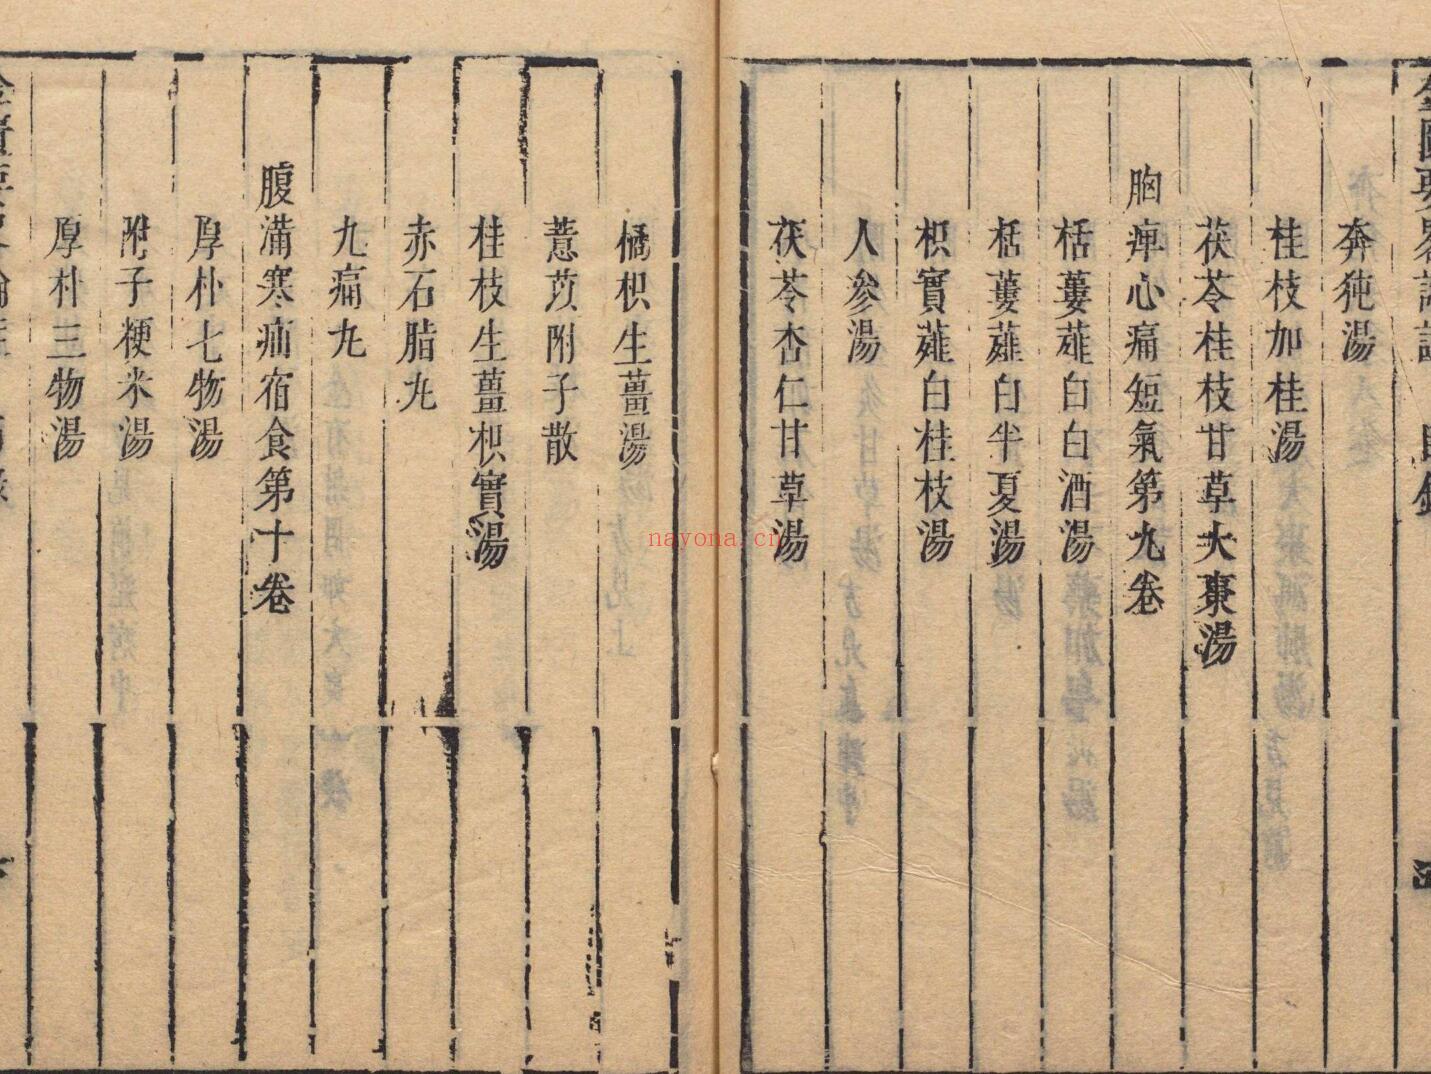 奔㹠湯
桂枝加桂湯
茯苓桂枝甘草大棗湯
胸痺心痛短氣第九卷
栝蔞薤白白酒湯
栝蔞薤白半夏湯
枳實薤白桂枝湯
人參湯
茯苓杏仁甘草湯
橘枳生薑湯
薏苡附子散
桂枝生薑枳實湯
赤石脂丸
九痛丸
腹滿寒疝宿食第十卷
厚朴七物湯
附子粳米湯
厚朴三物湯
nayona.cn